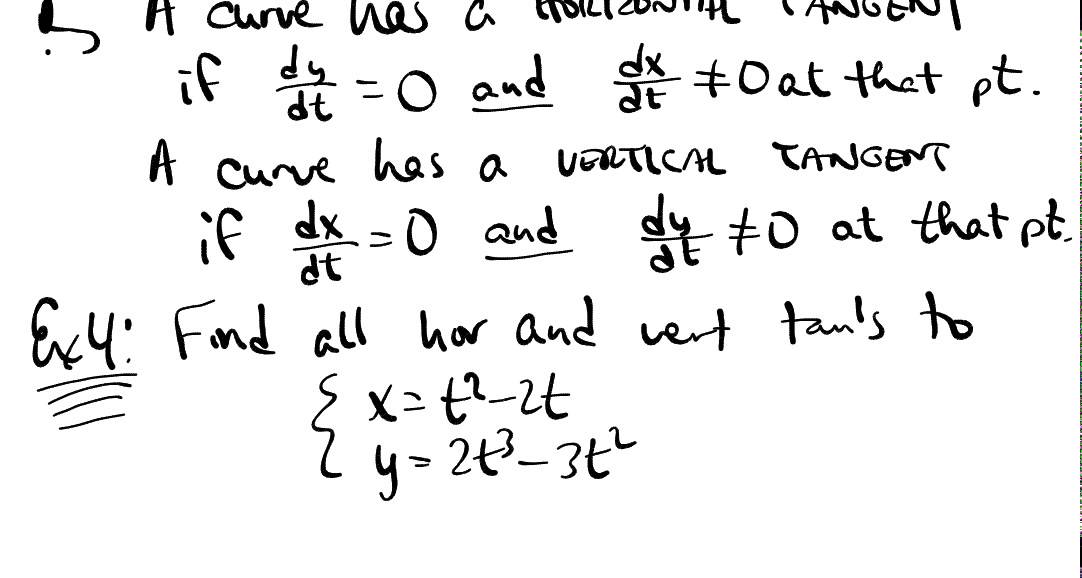 A curve has a HORIZONTAL TANGENT
if dy/dt = 0 and dx/dt ≠ 0 at that pt.
A curve has a VERTICAL TANGENT
if dx/dt = 0 and dy/dt ≠ 0 at that pt.
Ex4: Find all hor and vert tan's to
{ x = t²-2t
y = 2t³-3t²